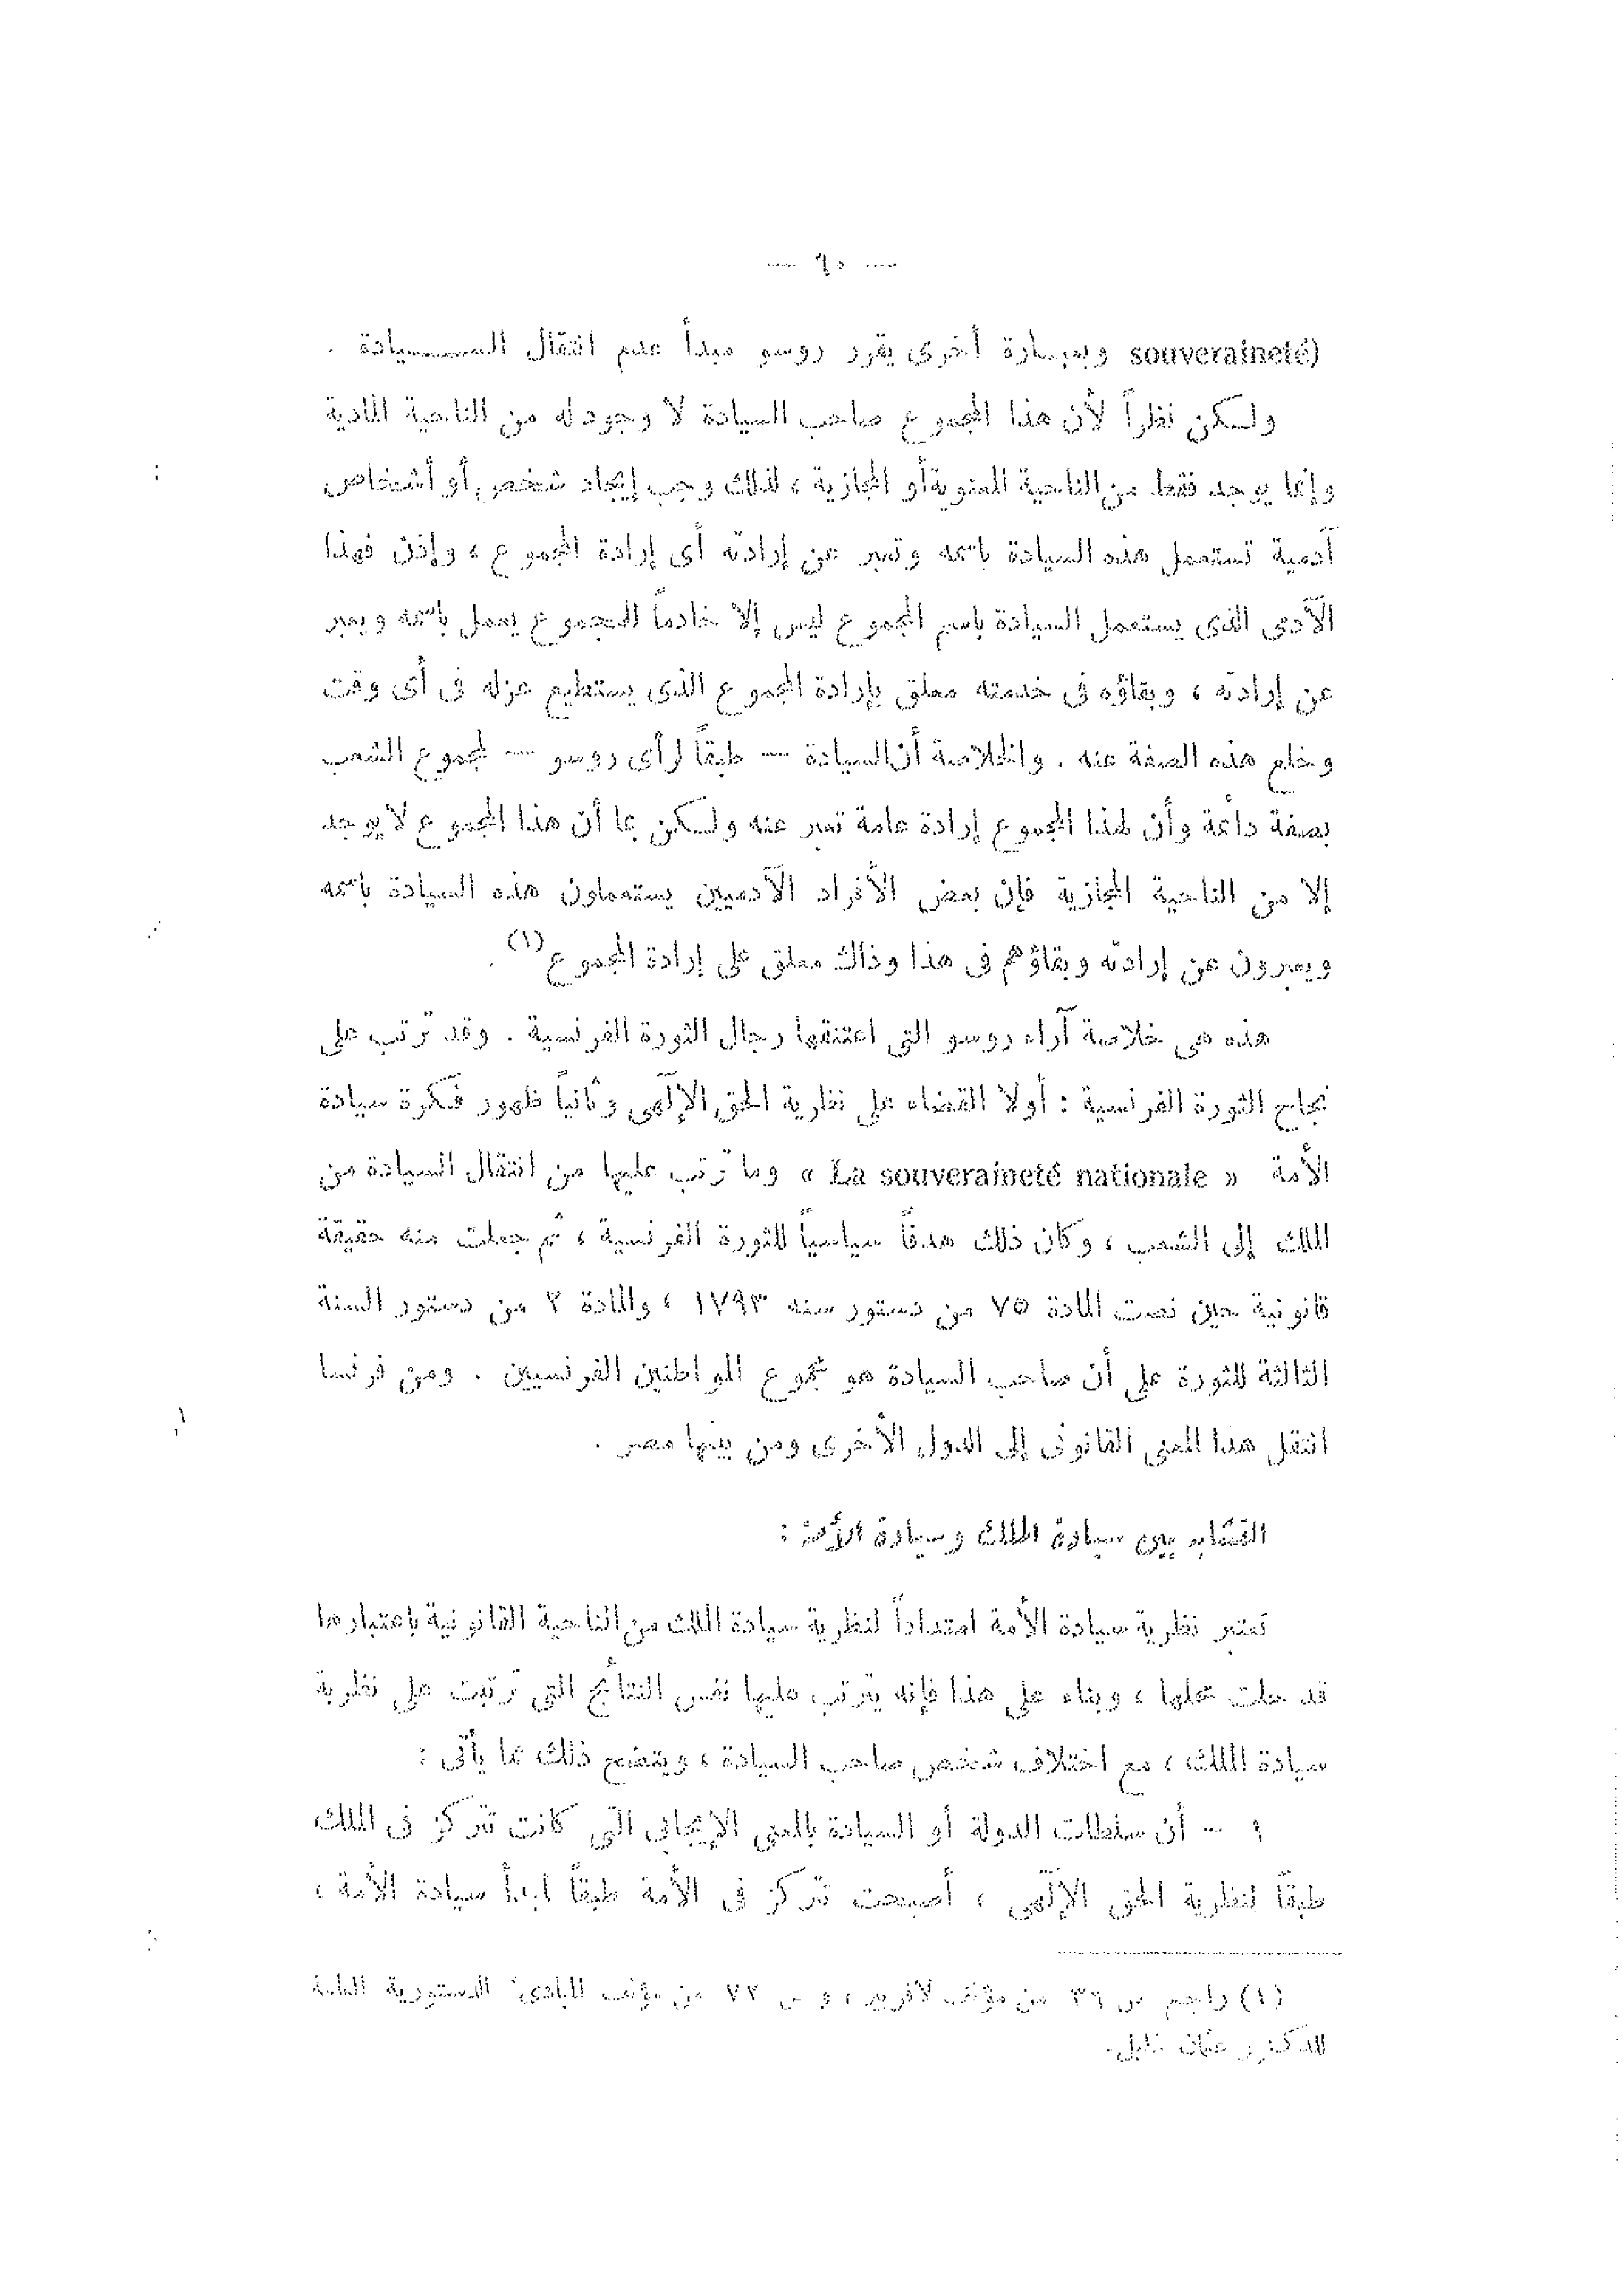 — ٦٠ —
souveraineté) وبعبارة أخرى يقرر روسو مبدأ عدم انتقال الســـيادة .
ولكن نظراً لأن هذا المجموع صاحب السيادة لا وجود له من الناحية المادية
وإنما يوجد فقط من الناحية المعنوية أو المجازية ، لذلك وجب إيجاد شخص أو أشخاص
آدمية تستعمل هذه السيادة باسمه وتعبر عن إرادته أى إرادة المجموع ، وإذن فهذا
الآدمى الذى يستعمل السيادة باسم المجموع ليس إلا خادماً للمجموع يعمل باسمه ويعبر
عن إرادته ، وبقاؤه فى خدمته معلق بإرادة المجموع الذى يستطيع عزله فى أى وقت
وخلع هذه الصفة عنه . والخلاصة أن السيادة — طبقاً لرأى روسو — لمجموع الشعب
بصفة دائمة وأن لهذا المجموع إرادة عامة تعبر عنه ولكن بما أن هذا المجموع لا يوجد
إلا من الناحية المجازية فإن بعض الأفراد الآدميين يستعملون هذه السيادة باسمه
ويعبرون عن إرادته وبقاؤهم فى هذا وذاك معلق على إرادة المجموع (١) .
هذه هى خلاصة آراء روسو التى اعتنقها رجال الثورة الفرنسية . وقد ترتب على
نجاح الثورة الفرنسية : أولا القضاء على نظرية الحق الإلهى وثانياً ظهور فكرة سيادة
الأمة « La souveraineté nationale » وما ترتب عليها من انتقال السيادة من
الملك إلى الشعب ، وكان ذلك هدفاً سياسياً للثورة الفرنسية ، ثم جعلت منه حقيقة
قانونية حين نصت المادة ٧٥ من دستور سنه ١٧٩٣ ، والمادة ٢ من دستور السنة
الثالثة للثورة على أن صاحب السيادة هو مجموع المواطنين الفرنسيين . ومن فرنسا
انتقل هذا المعنى القانونى إلى الدول الأخرى ومن بينها مصر .
التشابه بين سيادة الملك وسيادة الأمة :
تعتبر نظرية سيادة الأمة امتداداً لنظرية سيادة الملك من الناحية القانونية باعتبارها
قد حلت محلها ، وبناء على هذا فإنه يترتب عليها نفس النتائج التى ترتبت على نظرية
سيادة الملك ، مع اختلاف شخص صاحب السيادة ، ويتضح ذلك مما يأتى :
١ — أن سلطات الدولة أو السيادة بالمعنى الإيجابى التى كانت تتركز فى الملك
طبقاً لنظرية الحق الإلهى ، أصبحت تتركز فى الأمة طبقاً لمبدأ سيادة الأمة ،
(١) راجع ص ٣٦ من مؤلف لافريير ، و ص ٧٢ من مؤلف المبادئ الدستورية العامة
للدكتور عثمان خليل .